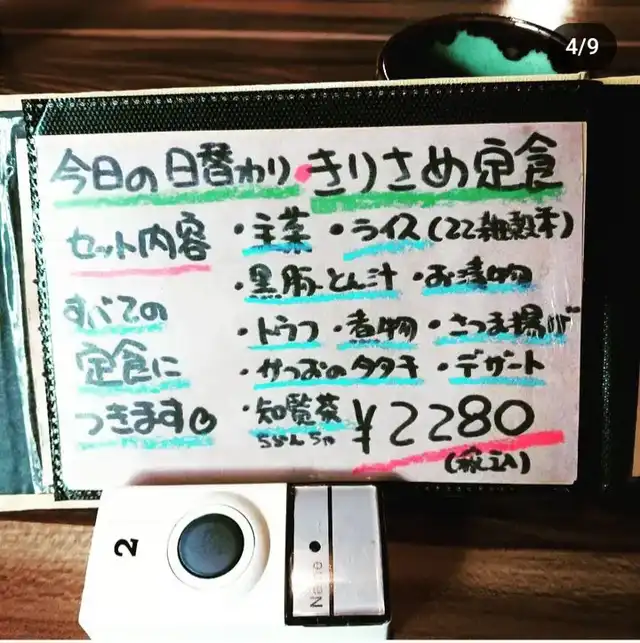 4/9
今日の日替わり・きりさめ定食
セット内容
・主菜 ・ライス(22雑穀米)
・黒豚とん汁 ・お漬物
すべての
・トラフ ・煮物 ・さつま揚げ
定食に
・かつおのタタキ ・デザート
つきます
・知覧茶
ちらんちゃ
¥2280
(税込)
2
Name